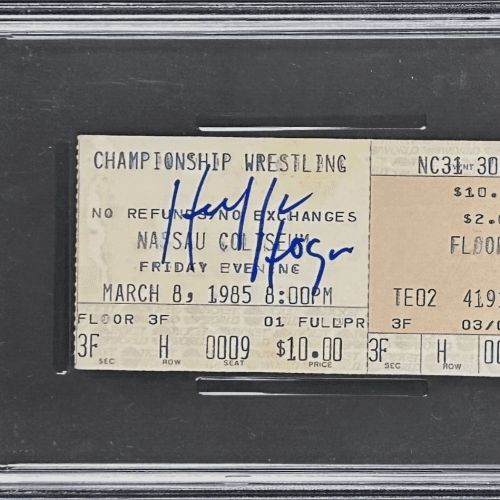 CHAMPIONSHIP WRESTLING
Hulk Hogan
NO REFUNDS/NO EXCHANGES
NASSAU COLISEUM
FRIDAY EVENING
MARCH 8, 1985 8:00PM
FLOOR 3F 01 FULLPR
3F H 0009 $10.00
SEC ROW SEAT PRICE
NC31 30
$10.
$2.
FLOO
TE02 419
3F 03/0
3F H 00
SEC ROW